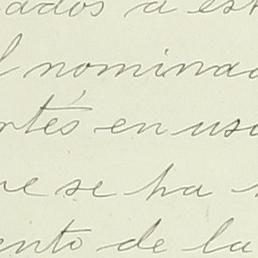 ados a est
l nomina
rtés en uso
re se ha
ento de la